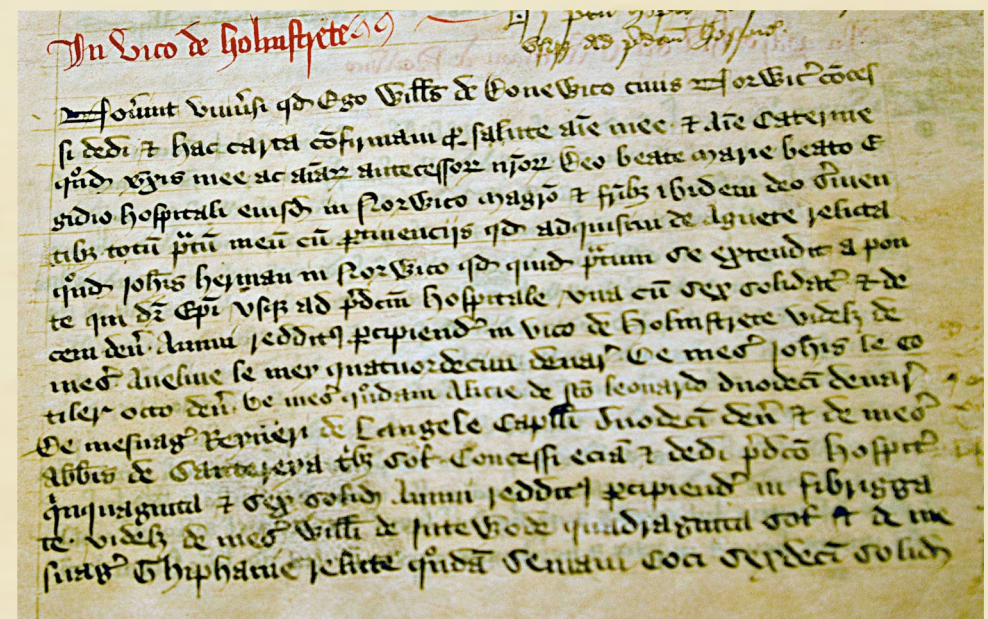 In vico de holmstrete
usqz ad p̄dcm̄ hospit
Nouint uniu'si qd Ego Will's de Donewico ciuis Norwic' cōces
si dedi & hac carta cōfirmaui p salute aīe mee & aīe Caterine
quond vx̄is mee ac aīar antecessor nr̄or Deo beate marie beato E
gidio hospitali eiusd in Norwico magrō & frībz ibidem deo s'uien
tibz totū p̄tū meū cū ptinencijs qd adquisiui de Agnete relicta
quond Joh'is herman in Norwico qd quid p̄tum se extendit a pon
te qui dr̄ Ep̄i vsqz ad p̄dcm̄ hospitale vna cū sex solidat' & de
cem den' Annui redditus pcipiend' in vico de Holmstrete videlz de
mes' Aueline le mey quatuordecim denar' De mes' Joh'is le co
tiler octo den' De mes' quondam Alicie de sc̄o leonardo duodecī denar'
De mesuag' Reyneri de Langele Capll'i duodecī den' & de mes'
Abbis de Santereya t'bz sol' Concessi eciā & dedi p̄dcō hospit'
quinquaginta & sex solid Annui reddit' pcipiend' in fibrigga
te videlz de mes' Will'i de Intewode quadraginta sol' & de me
suag' Thiphanie relicte quondā Semani Coci sexdecī solid